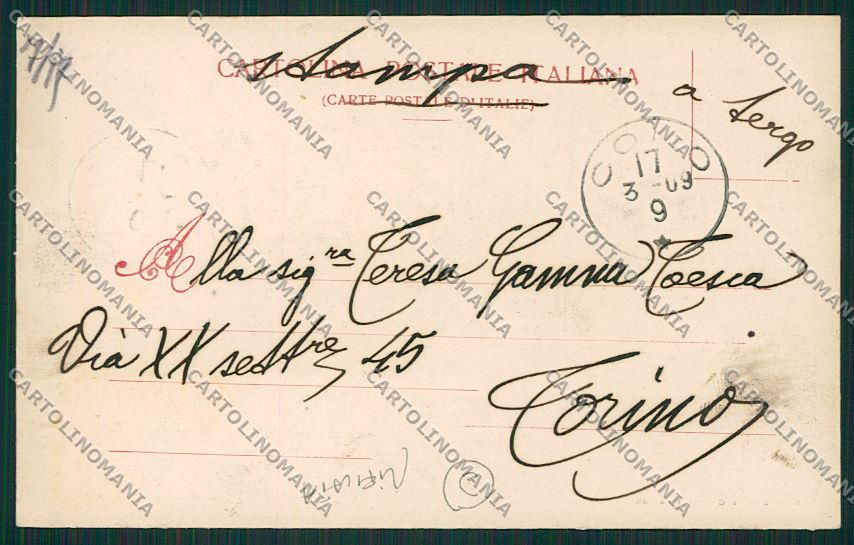 CARTOLINA POSTALE ITALIANA
Stampa
(CARTE POSTALE D'ITALIE)
a tergo
17
3 -09
9
Alla sig.ra Teresa Gamna Toesca
Via XX settre 45
Torino
CARTOLINOMANIA